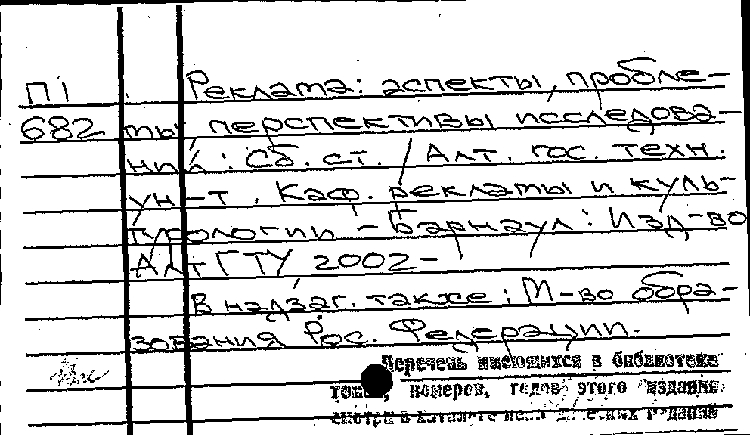 П1 Реклама: аспекты, пробле-
682 мы, перспективы исследова-
ний: Сб. ст. / Алт. гос. техн.
ун-т. Каф. рекламы и куль-
турологии - Барнаул: Изд-во
АлтГТУ, 2002-
В надзаг. также: М-во обра-
зования Рос. Федерации.
Перечень имеющихся в библиотеке
томов, номеров, годов этого издания
смотри в каталоге периодических изданий